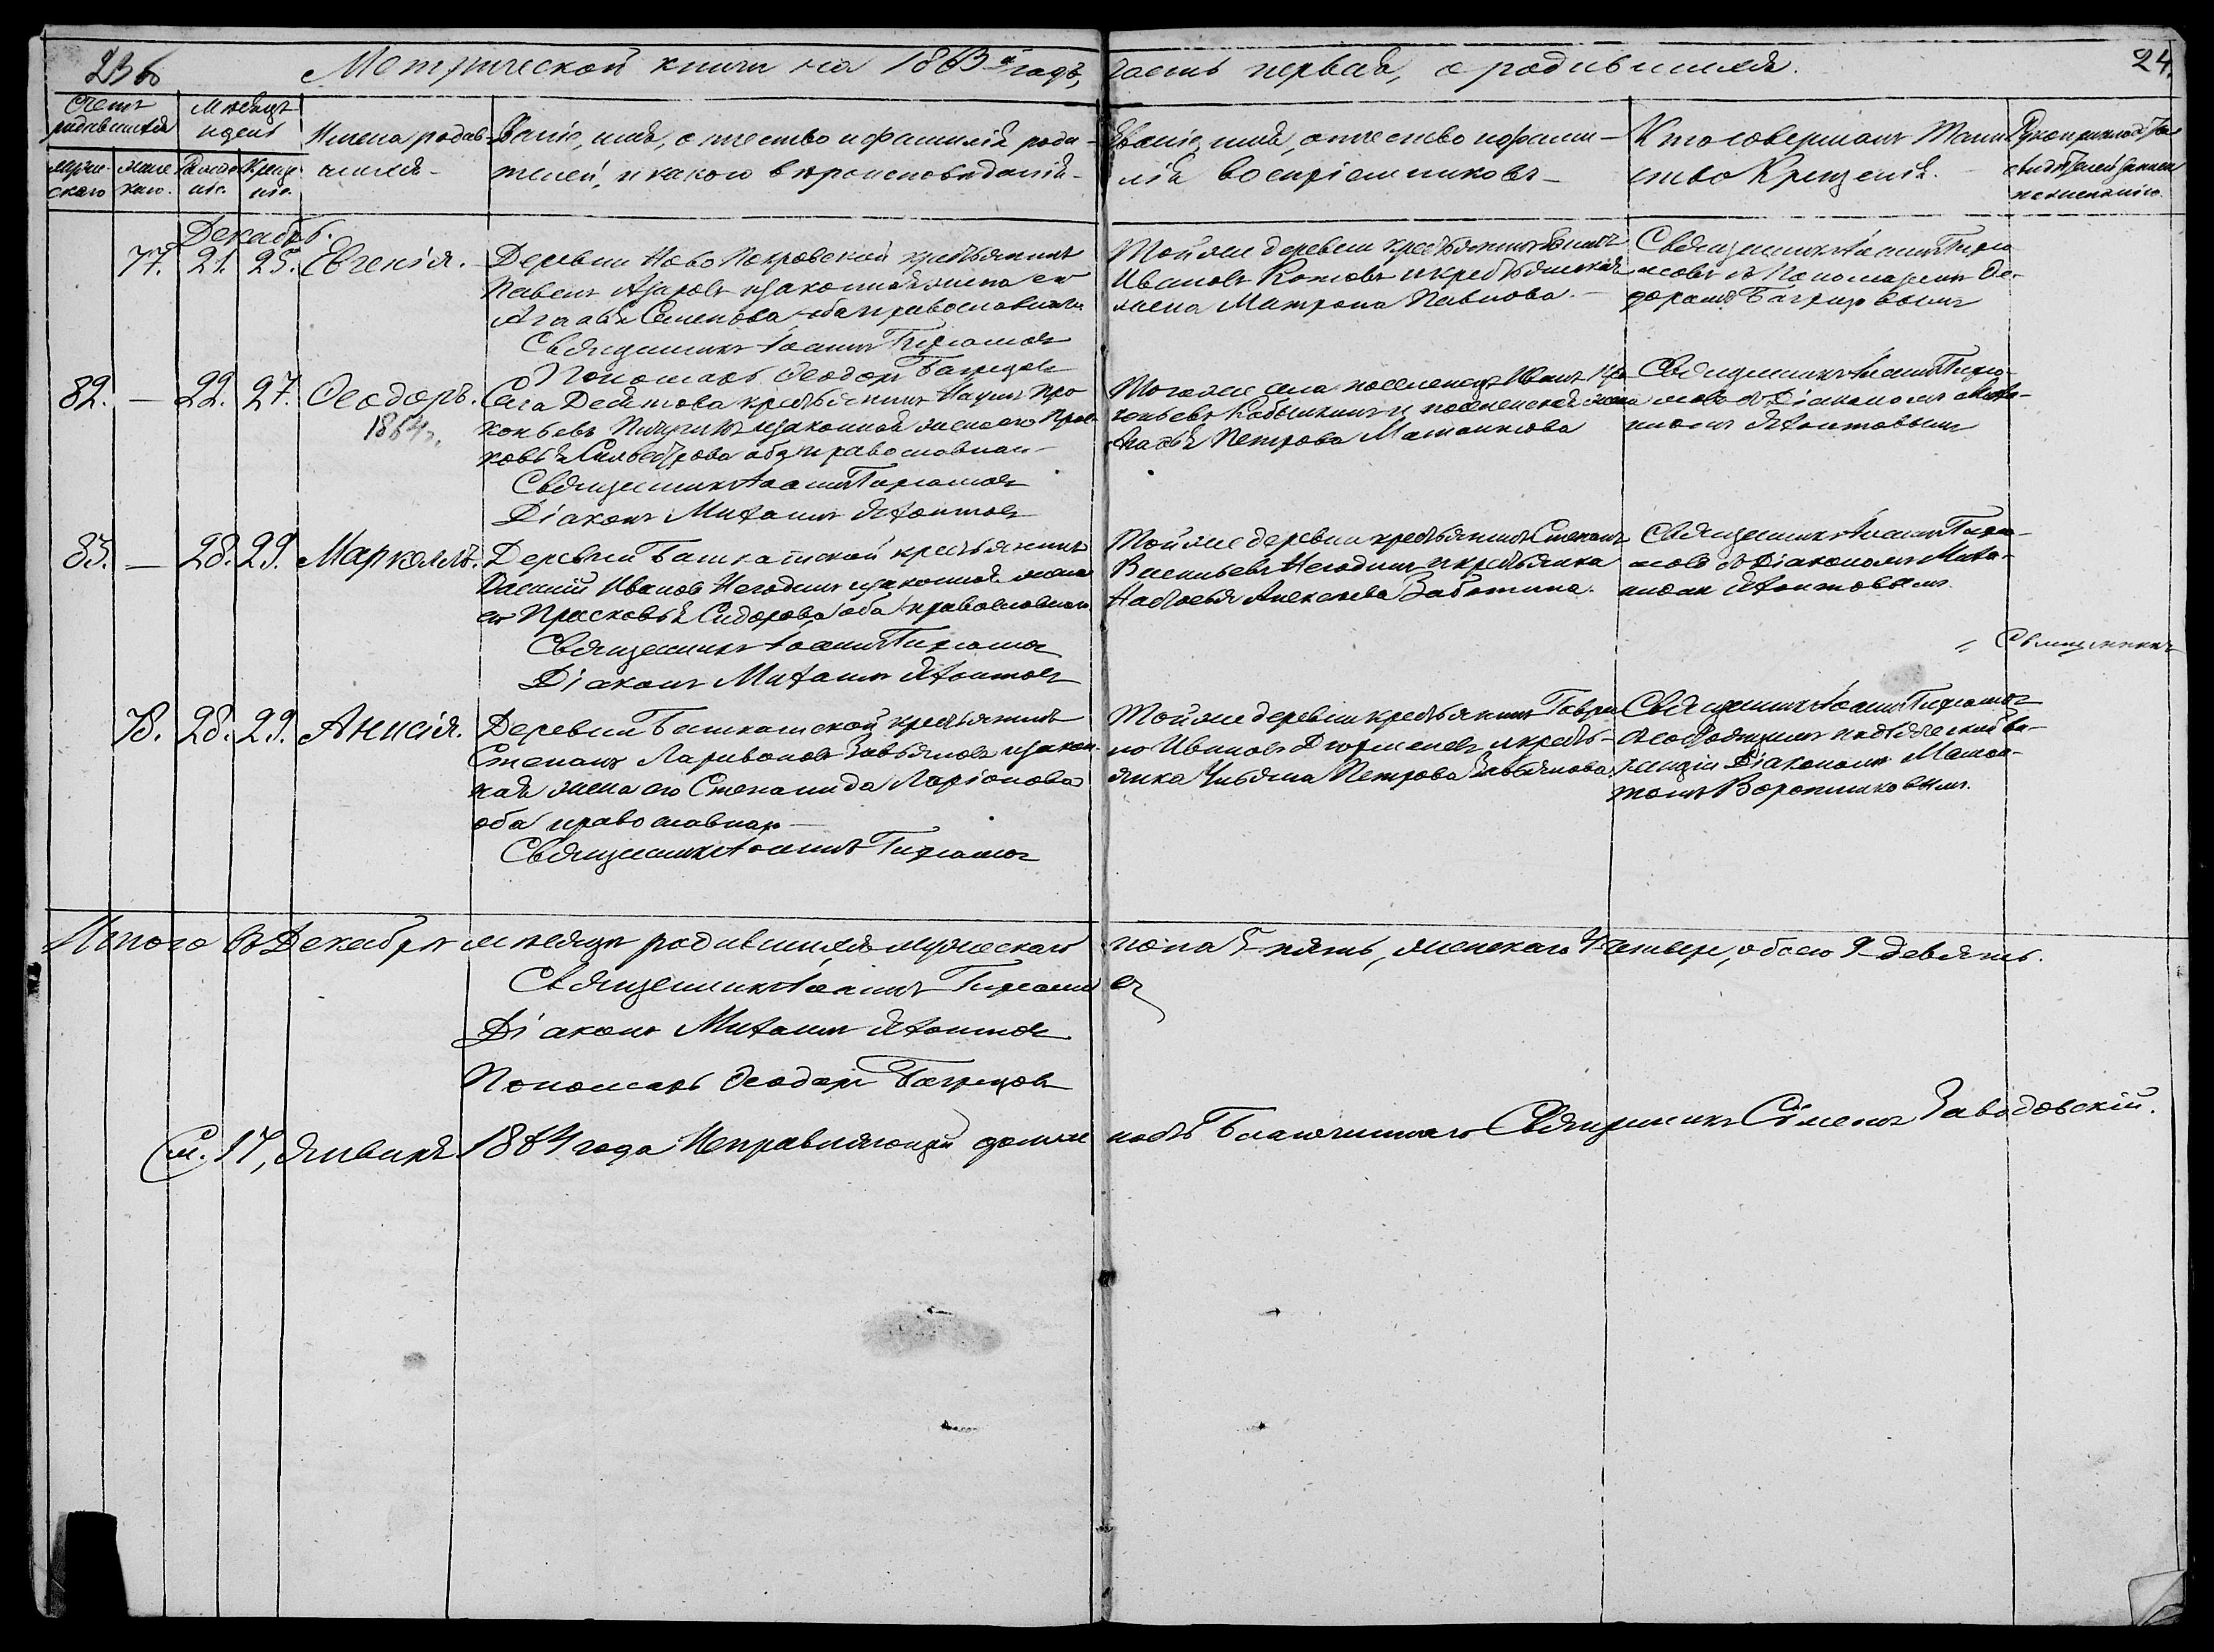 236
Метрической книги на 1863й годъ, часть первая, о родившихся.
24.
Счетъ родившихся
Мѣсяцъ и день
Имена родившихся
Званіе, имя, отчество и фамилія родителей, и какого вѣроисповѣданія
Званіе, имя, отчество и фамилія воспріемниковъ
Кто совершалъ Таинство Крещенія.
Рукоприкладство свидѣтелей записи по желанію.
мужескаго
женскаго.
Рожденіе.
Крещеніе.
Декабрь.
77. 21. 25. Евгенія.
Деревни Ново Покровской крестьянинъ
Павелъ Азаровъ и законная жена его
Агаѳья Семенова оба православные
Священникъ Іоаннъ
Пономарь Ѳеодоръ Багрецовъ
Той же деревни крестьянинъ
Ивановъ Котовъ и крестьянская
жена Матрона Павлова.
Священникъ Іоаннъ
съ Пономаремъ Ѳе-
доромъ Багрецовымъ
82. — 22. 27. Ѳеодоръ.
1864 г.
Села крестьянинъ Наумъ Про
копьевъ и законная жена его Прас
ковья Сильвестрова оба православные
Священникъ Іоаннъ
Діаконъ Михаилъ Яхонтовъ
Того же села поселенецъ Иванъ Про
копьевъ и поселенская жена
Петрова
Священникъ Іоаннъ
съ Діакономъ Миха-
иломъ Яхонтовымъ
83. — 28. 29. Маркеллъ.
Деревни Башкатской крестьянинъ
Ивановъ Негодинъ и законная жена
его Прасковья Сидорова оба православные
Священникъ Іоаннъ
Діаконъ Михаилъ Яхонтовъ
Той же деревни крестьянинъ Степанъ
Васильевъ Негодинъ и крестьянка
Настасья Алексеева
Священникъ Іоаннъ
съ Діакономъ Миха-
иломъ Яхонтовымъ
Священникъ
78. 28. 29. Анисія.
Деревни Башкатской крестьянинъ
Степанъ Ларивоновъ Завьяловъ и закон-
ная жена его Степанида Ларіонова
оба православные
Священникъ Іоаннъ
Той же деревни крестьянинъ Гаври
ло Ивановъ и кресть-
янка Ульяна Петрова Завьялова
Священникъ Іоаннъ
Діакономъ
Воротниковымъ.
Итого въ Декабрѣ мѣсяцѣ родившихся мужескаго пола 5 пять, женскаго 4 четыре, обоего 9 девять.
Священникъ Іоаннъ
Діаконъ Михаилъ Яхонтовъ
Пономарь Ѳеодоръ Багрецовъ
См. 17, Января 1864 года Исправляющій должность Благочиннаго Священникъ Сѵмеонъ Заводовскій.